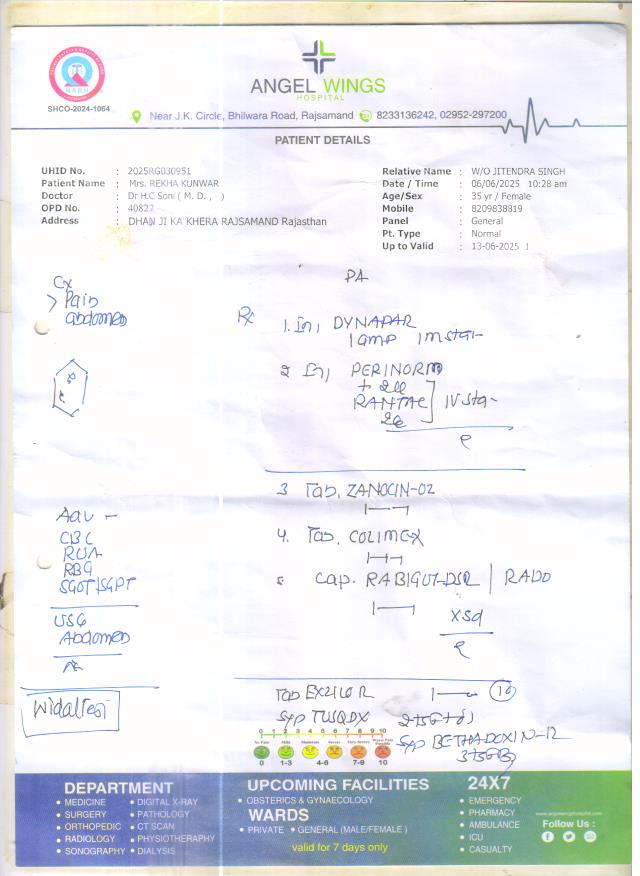 SHCO-2024-1064
ANGEL WINGS
HOSPITAL
Near J.K. Circle, Bhilwara Road, Rajsamand 8233136242, 02952-297200
PATIENT DETAILS
UHID No. : 2025RG030951
Patient Name : Mrs. REKHA KUNWAR
Doctor : Dr H.C Soni ( M. D., , )
OPD No. : 40827
Address : DHANJI KA KHERA RAJSAMAND Rajasthan
Relative Name : W/O JITENDRA SINGH
Date / Time : 06/06/2025 10:28 am
Age/Sex : 35 yr / Female
Mobile : 8209838819
Panel : General
Pt. Type : Normal
Up to Valid : 13-06-2025
Pain
abdomen
Rx
1. Inj DYNAPAR
1 amp IM stat
2 Inj PERINORM
+ 2cc
RANTAC IV stat
2cc
3 Tab. ZANOCIN-OZ
4. Tab. COLIMEX
5 Cap. RABIGUT-DSR
x5d
Adv -
CBC
RBG
SGOT/SGPT
USG
Abdomen
Widal Test
10
0 1 2 3 4 5 6 7 8 9 10
0 1-3 4-6 7-9 10
DEPARTMENT
• MEDICINE
• SURGERY
• ORTHOPEDIC
• RADIOLOGY
• SONOGRAPHY
• DIGITAL X-RAY
• PATHOLOGY
• CT SCAN
• PHYSIOTHERAPHY
• DIALYSIS
UPCOMING FACILITIES
• OBSTERICS & GYNAECOLOGY
WARDS
• PRIVATE • GENERAL (MALE/FEMALE )
valid for 7 days only
24X7
• EMERGENCY
• PHARMACY
• AMBULANCE
• ICU
• CASUALTY
Follow Us :